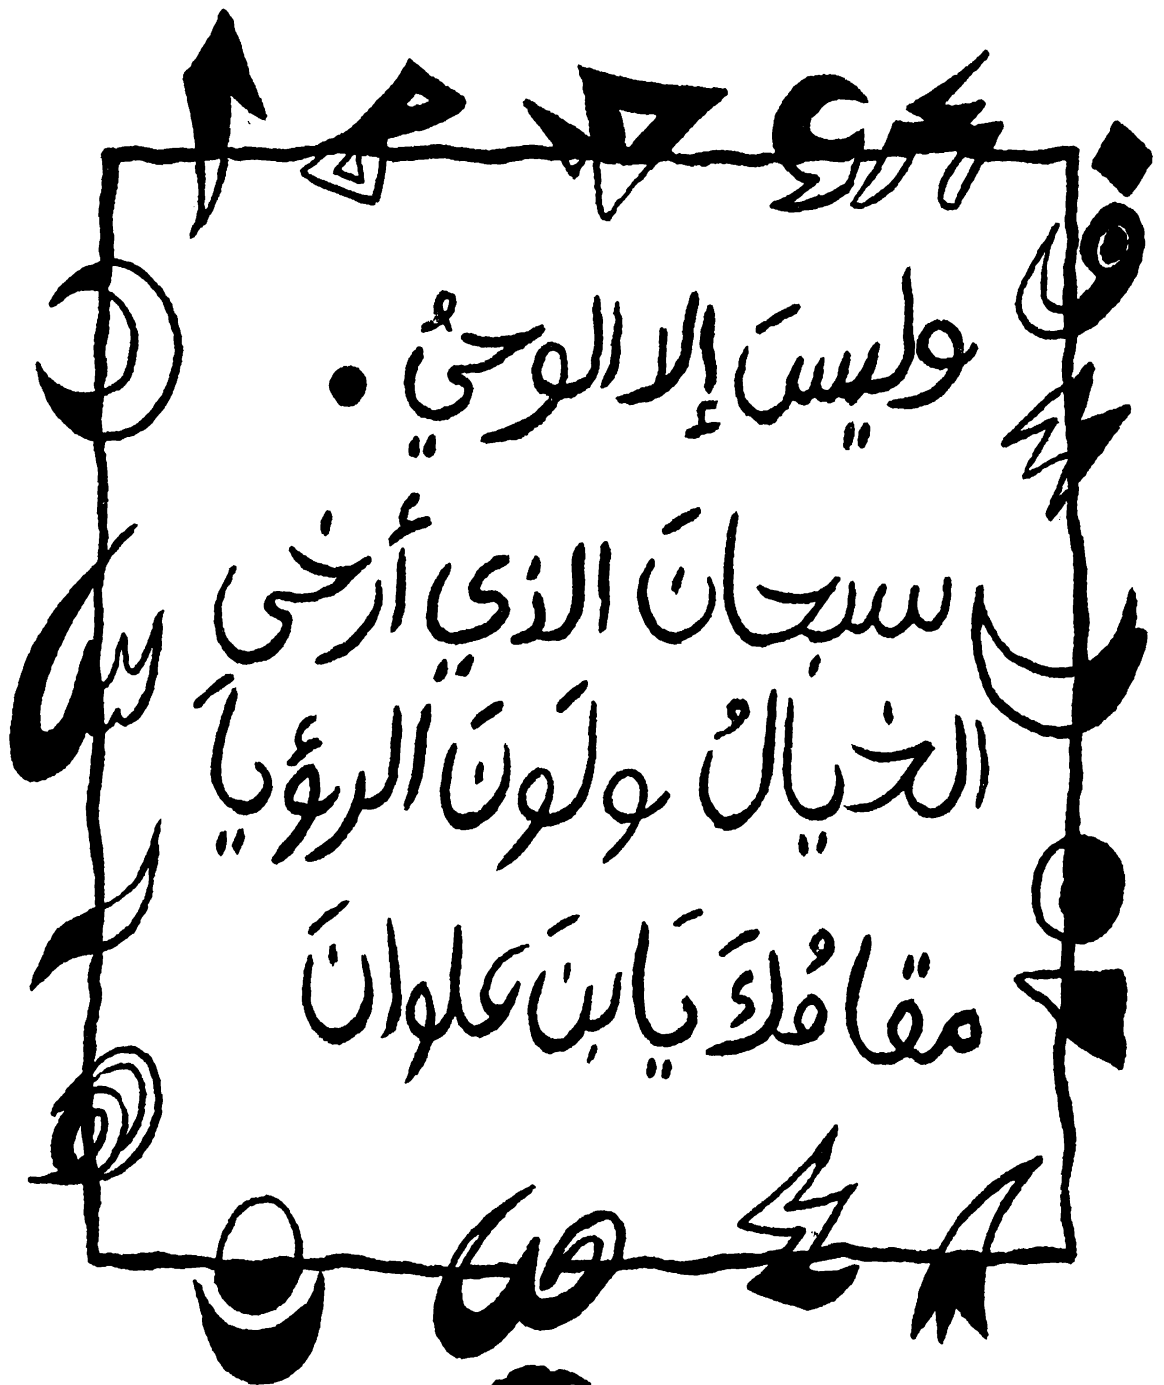 وليسَ إلا الوحيُ .
سبحانَ الذي أرخى
الخيالُ ولَونَ الرؤياَ
مقامُكَ يَا بنَ علوانَ